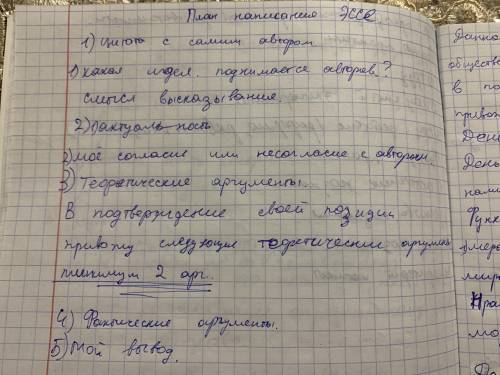 План написания ЭССЕ
1) цитата с самим автором
1) какая идея поднимается автором?
смысл высказывания.
2) актуальность
2) моё согласие или несогласие с автором.
3) Теоретические аргументы.
В подтверждение своей позиции
привожу следующие теоретические аргумен
минимум 2 арг.
4) Фактические аргументы.
5) Мой вывод.
Данно
обществе
в по
приво
День
Функ
мера
мир